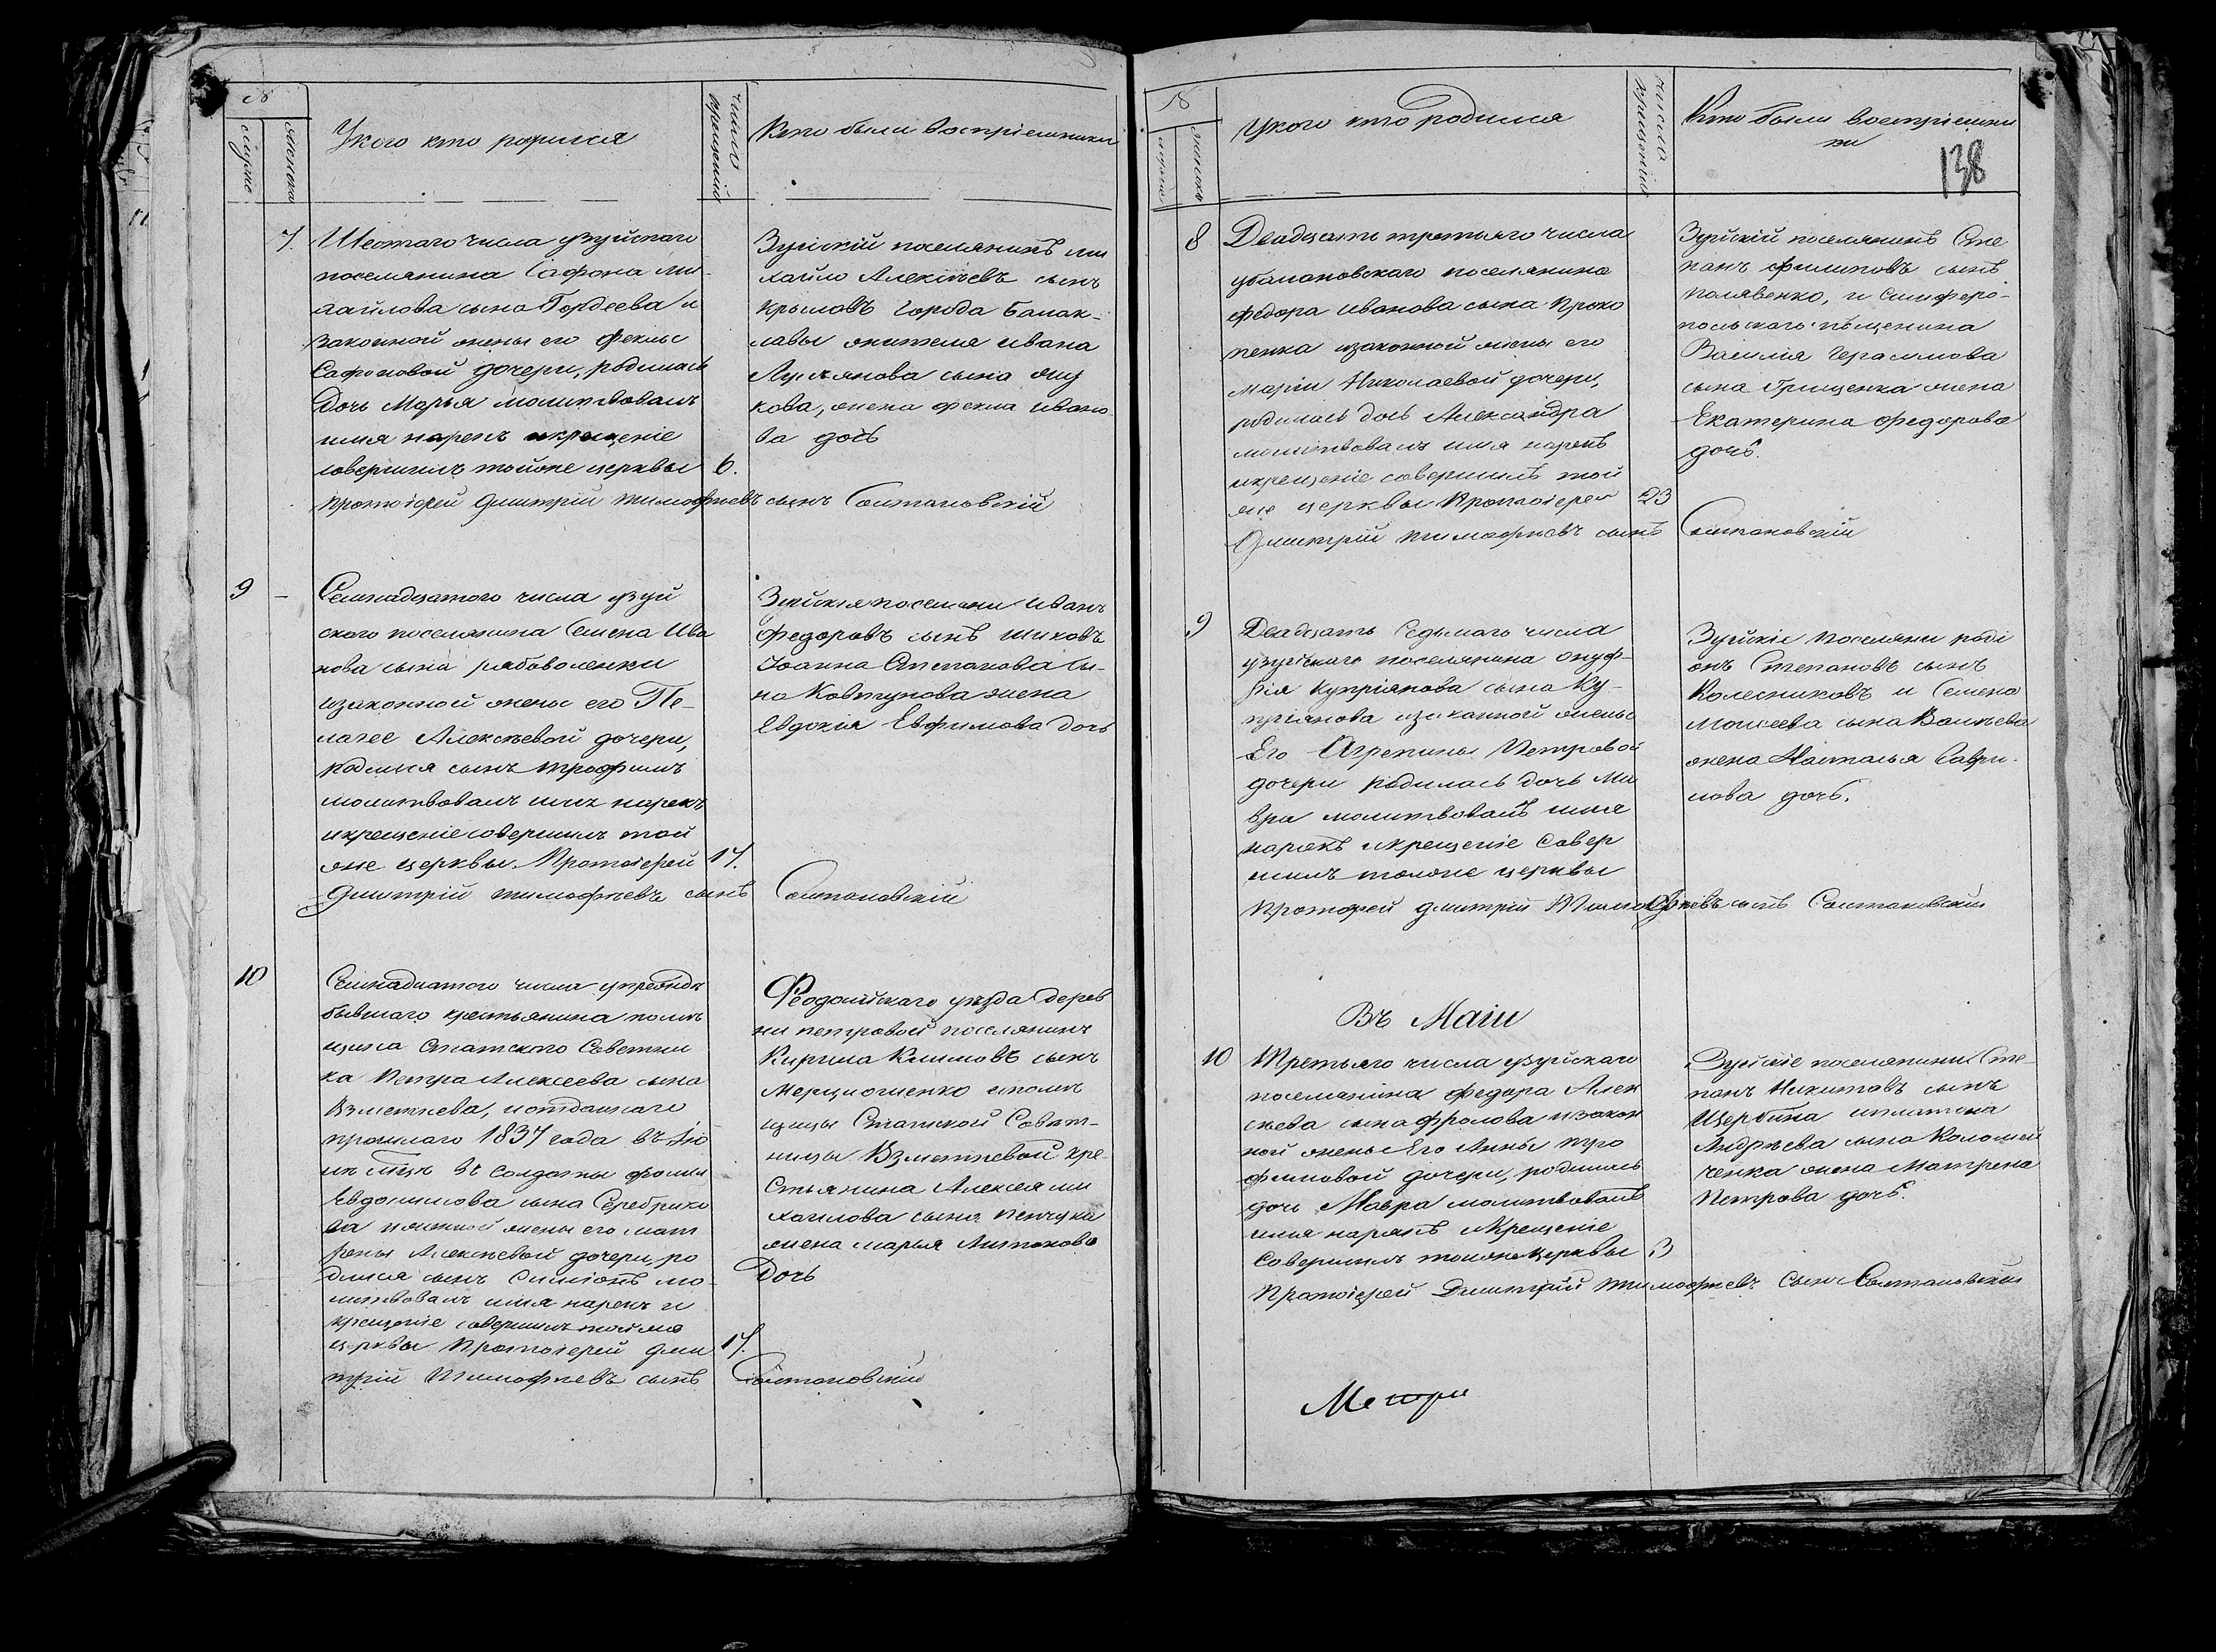 №
мужск
женска
У кого кто родился
число крещенія
Кто были Воспріемники
7. Шестаго числа узуйскаго
поселянина Сафона Ми-
хайлова сына Гордеева и
законной жены его Феклы
Сафоновой дочери, родилась
Дочь Марья молитвовалъ
имя нарекъ и крещеніе
совершилъ тойже церквы 6.
протоіерей Дмитрій Тимофѣевъ сынъ
Зуйскій поселянинъ Ми
хайло Алексѣевъ сынъ
Крыловъ города Балак-
лавы жителя Ивана
Лукъянова сына
кова, жена Фекла Ивано
ва дочь
9 – Семнадцатого числа узуй
ского поселянина Семена Ива
нова сына
изаконной жены его Пе-
лагее Алексѣевой дочери,
родился сынъ Трофимъ
молитвовалъ имя нарекъ
и крещеніе совершилъ той
же церквы. Протоіерей 17.
Дмитрій Тимофѣевъ сынъ
Зуйскія поселяни Иванъ
Федоровъ сынъ Шиховъ
Іоанна Степанова сы-
на Ковтунова жена
Евдокія Евфимова дочь
10 Семнадцатого числа
бывшаго крестьянина помѣ
щика Статского Советни
ка Петра Алексеева сына
Взметнева, и отданнаго
прошлаго 1837 года въ
мцѣ въ солдаты Фомы
Евдокимова сына Серебряко
ва законной жены его Мат
рены Алексѣевой дочери, ро
дился сынъ Симіонъ мо-
литвовалъ имя нарекъ и
крещеніе совершилъ тойже
церквы Протоіерей Дми 17.
трій Тимофѣевъ сынъ
Феодосійскаго уѣзда дерев
ни Петровой поселянинъ
Кирила Климовъ сынъ
и помѣ
щицы Статской Совѣт-
ницы Взметневой кре-
стьянина Алексея Ми
хайлова сына
жена Марья Антонова
Дочь
№
мужск
женска
У кого кто родился
число крещенія
Кто были воспріемни
ки
138
8 Двадцать третьяго числа
поселянина
Федора Иванова сына Проко
пенка изаконной жены его
Маріи Николаевой дочери,
родилась дочь Александра
молитвовалъ имя нарекъ
икрещеніе совершилъ той
же церквы Протоіерей 23
Дмитрій Тимофѣевъ сынъ
Зуйскій поселянинъ Сте
панъ Филиповъ сынъ
Полявенко, и Симферо-
польскаго мѣщенина
Василія Герасимова
сына Грищенка жена
Екатерина Федорова
дочь.
9 Двадцать Седьмаго числа
узуйскаго поселянина Онуф-
рія Купріянова сына Ку-
пріянова изаконной жены
Его Агрепины Петровой
дочери родилась дочь Ма
вра молитвовалъ имя
нарекъ икрещеніе Совер
шилъ тойже церквы
Протоірей Дмитрій Тимофѣевъ сынъ
Зуйскіе поселяни Роді
онъ Степановъ сынъ
Колесниковъ и Семена
Моисеева сына
жена Наталья Гаври-
лова дочь.
Въ Маіи
10 Третьяго числа узуйскаго
поселянина Федора Алек
сеева сына Фролова изакон
ной жены Его Анны Тро
фимовой дочери, родилась
дочь Мавра молитвовалъ
имя нарекъ икрещеніе
Совершилъ тойже церквы 3
Протоіерей Дмитрій Тимофѣевъ сынъ
Зуйскіе поселянини Сте-
панъ Никитовъ сынъ
Щербина
Андрѣева сына Коломей
ченка жена Матрена
Петрова дочь.
Метри